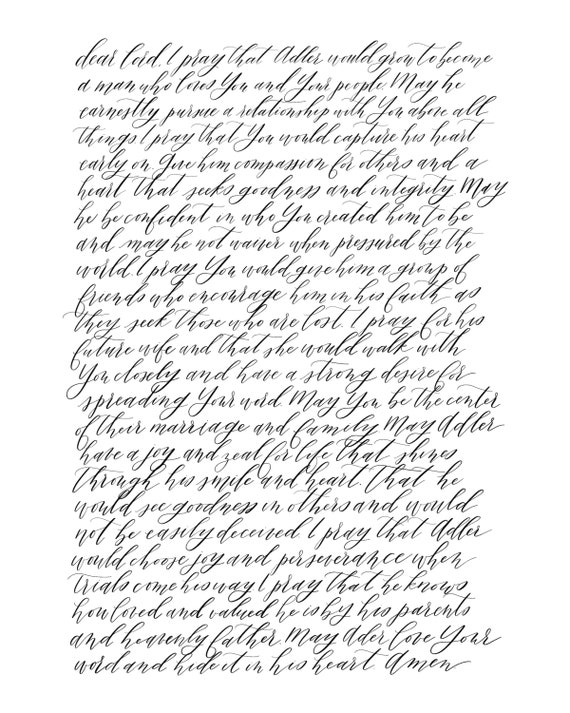 dear Lord, I pray that Adler would grow to become
a man who loves You and Your people. May he
earnestly pursue a relationship with You above all
things I pray that You would capture his heart
early on. Give him compassion for others and a
heart that seeks goodness and integrity. May
he be confident in who You created him to be
and may he not waver when pressured by the
world. I pray You would give him a group of
friends who encourage him in his faith as
they seek those who are lost. I pray for his
future wife and that she would walk with
You closely and have a strong desire for
spreading Your word. May You be the center
of their marriage and family. May Adler
have a joy and zeal for life that shines
through his smile and heart. That he
would see goodness in others and would
not be easily deceived. I pray that Adler
would choose joy and perseverance when
trials come his way. I pray that he knows
how loved and valued he is by his parents
and heavenly father. May Ader love Your
word and hide it in his heart Amen